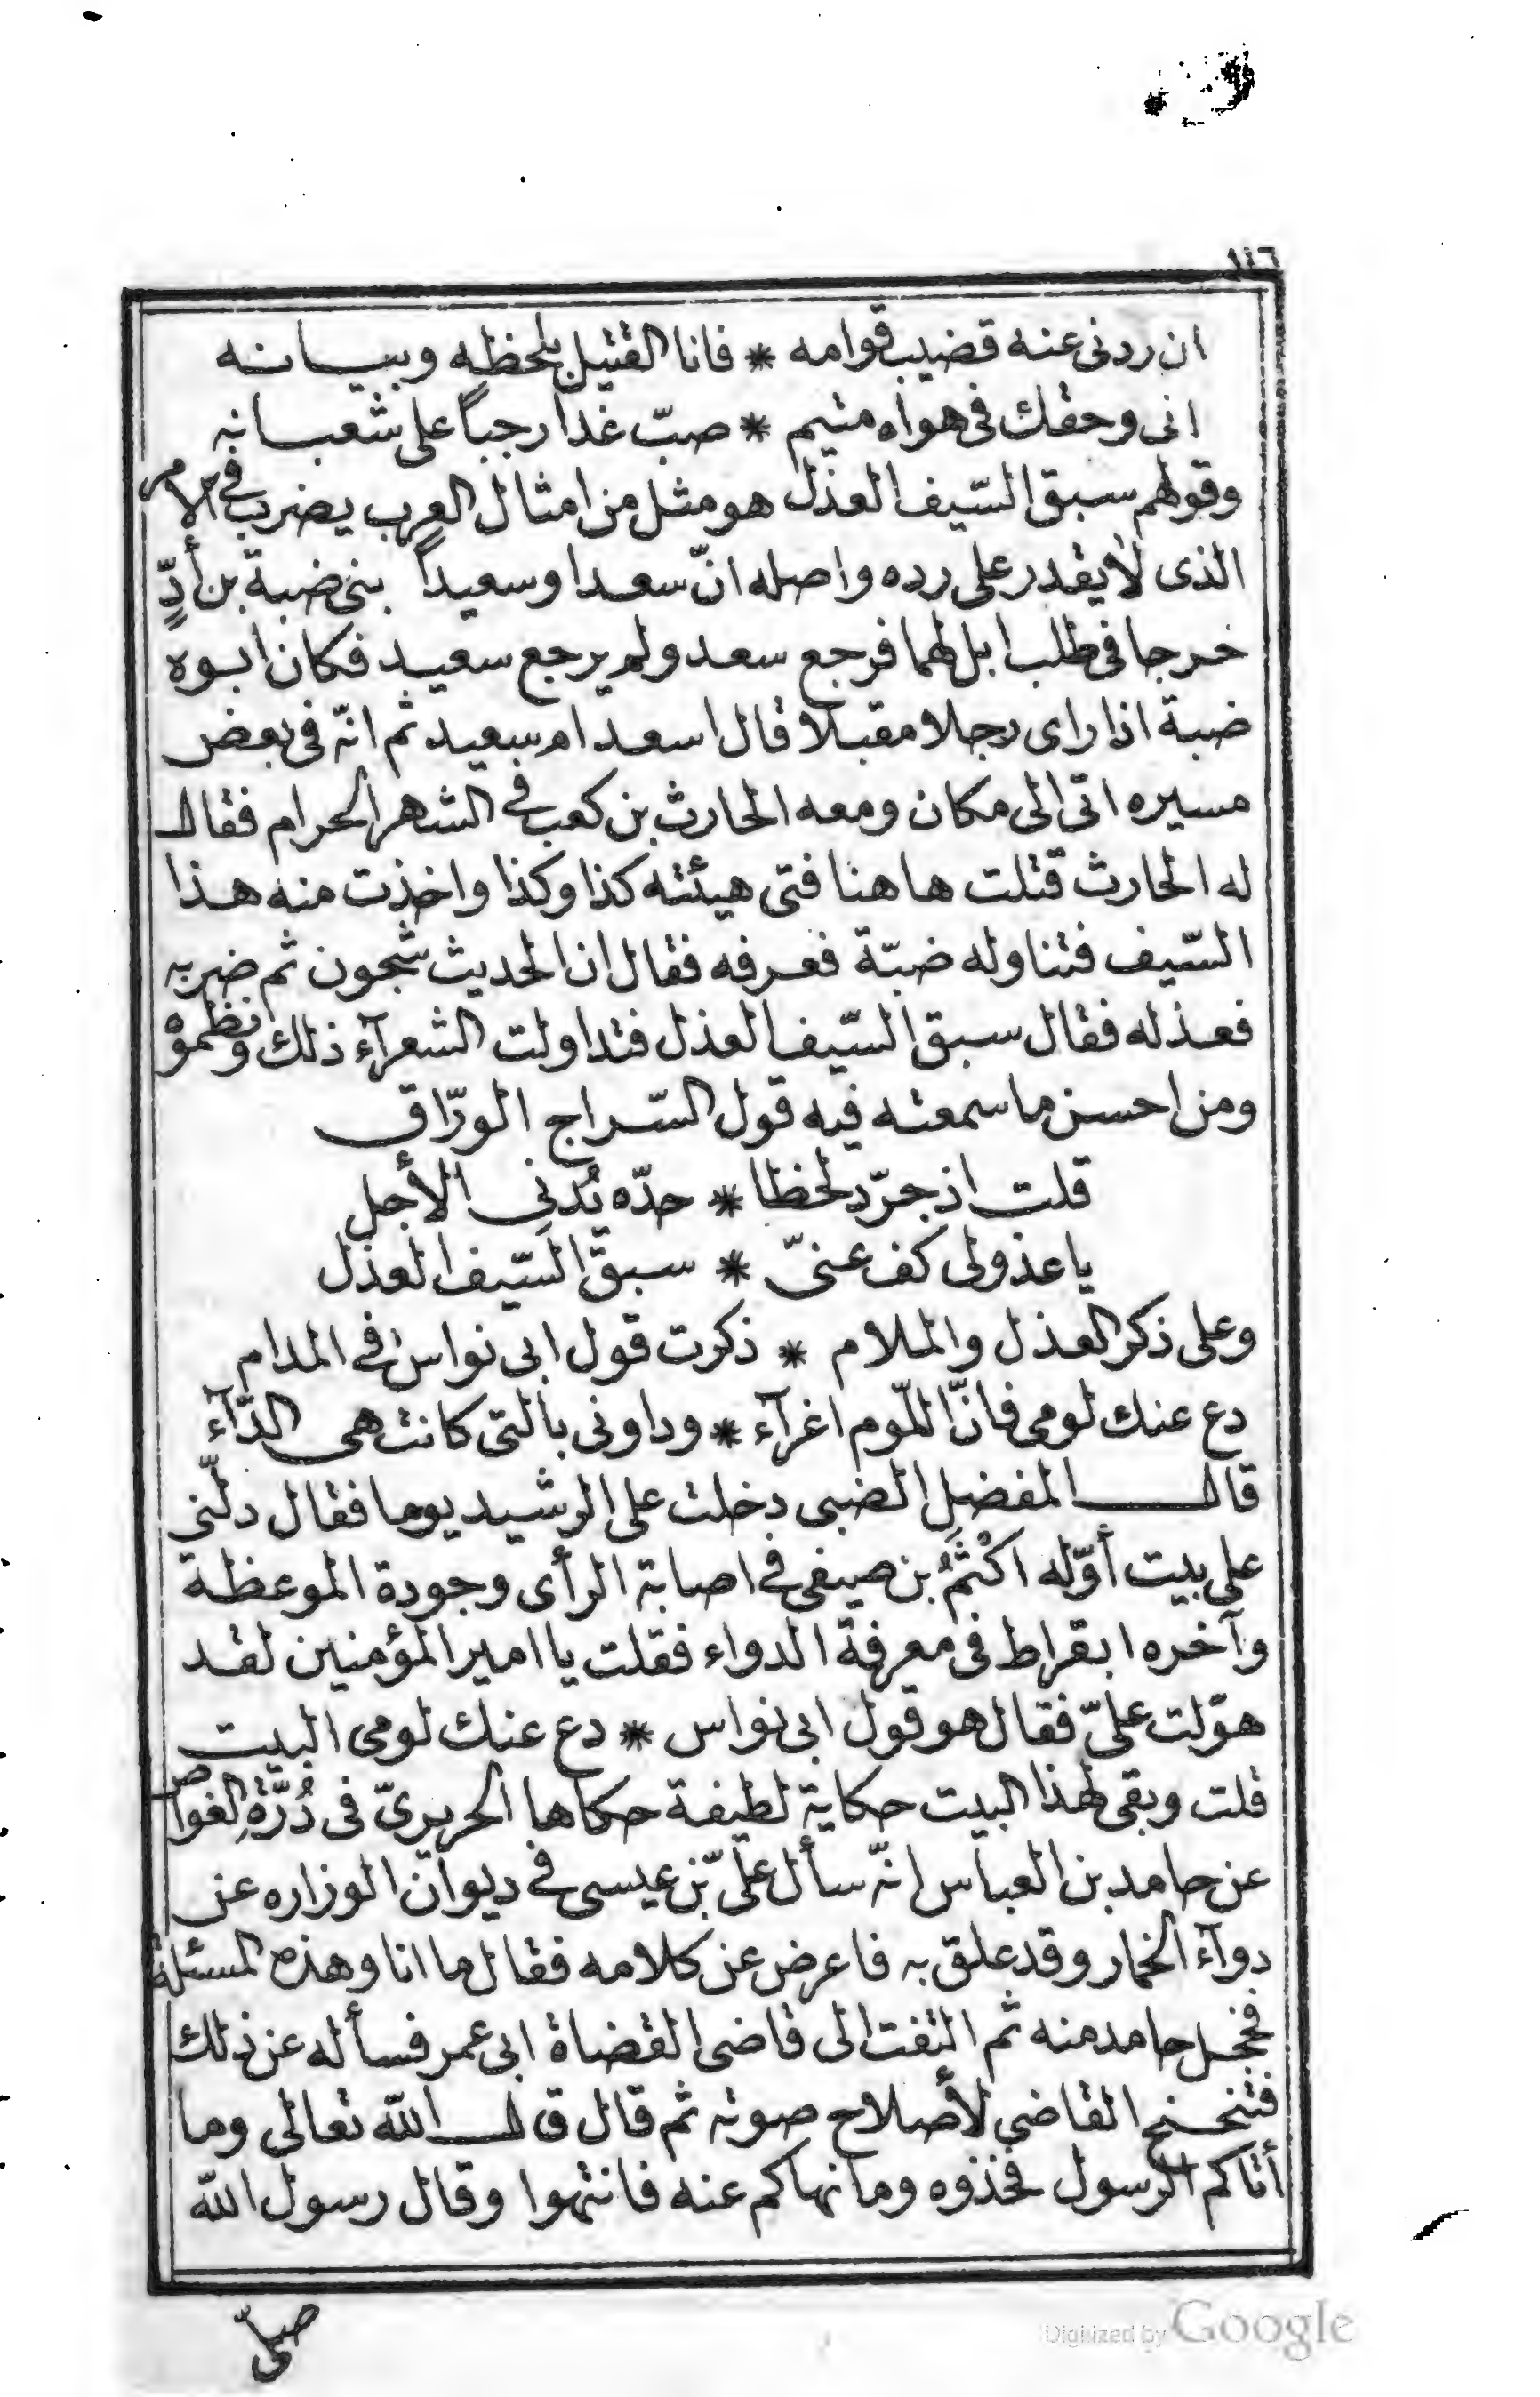 ١٤٦
ان ردنى عنه قضيب قوامه * فانا القتيل بلحظه وبيسانه
انى وحقك فى هواه متيم * صبّ غدا رجباً على شعبانه
وقولهم سبق السّيف العذل هو مثل من امثال العرب يضرب فى الامر
الذى لا يقدر على رده واصله انّ سعدا وسعيداً بنى ضبة بن أدٍّ
خرجا فى طلب ابل لهما فرجع سعد ولم يرجع سعيد فكان ابوه
ضبة اذا راى رجلا مقبلا قال اسعد ام سعيد ثم انّه فى بعض
مسيره اتى الى مكان ومعه الحارث بن كعب فى الشهر الحرام فقال
له الحارث قتلت هاهنا فتى هيئته كذا وكذا واخذت منه هذا
السّيف فتناوله ضبّة فعرفه فقال ان الحديث شجون ثم ضربه
فعذله فقال سبق السّيف العذل فتداولت الشعرآء ذلك ونظموه
ومن احسن ما سمعته فيه قول السّراج الورّاق
قلت اذ جرّد لحظا * حدّه يُدنِى الأجل
يا عذولى كف عنىّ * سبق السّيف العذل
وعلى ذكر العذل والملام * ذكرت قول ابى نواس فى المدام
دع عنك لومى فانّ اللّوم اغرآء * وداونى بالتى كانت هى الدّآء
قال المفضل الضبى دخلت على الرشيد يوما فقال دلّنى
على بيت أوّله اكْثَمُ بن صيفى فى اصابة الرأى وجودة الموعظة
وآخره ابقراط فى معرفة الدواء فقلت يا امير المؤمنين لقد
هوّلت علىّ فقال هو قول ابى نواس * دع عنك لومى البيت
قلت وبقى لهذا البيت حكاية لطيفة حكاها الحريرىّ فى دُرَّةِ الغواص
عن حامد بن العباس انّه سأل علىّ بن عيسى فى ديوان الوزاره عن
دوآء الخمار وقد علق به فاعرض عن كلامه فقال ما انا وهذه المسئلة
فخجل حامد منه ثم التفت الى قاضى القضاة ابى عمر فسأله عن ذلك
فتنحنح القاضى لأصلاح صوته ثم قال قال الله تعالى وما
أتاكم الرسول فخذوه وما نهاكم عنه فانتهوا وقال رسول الله
صلى
Digitized by Google